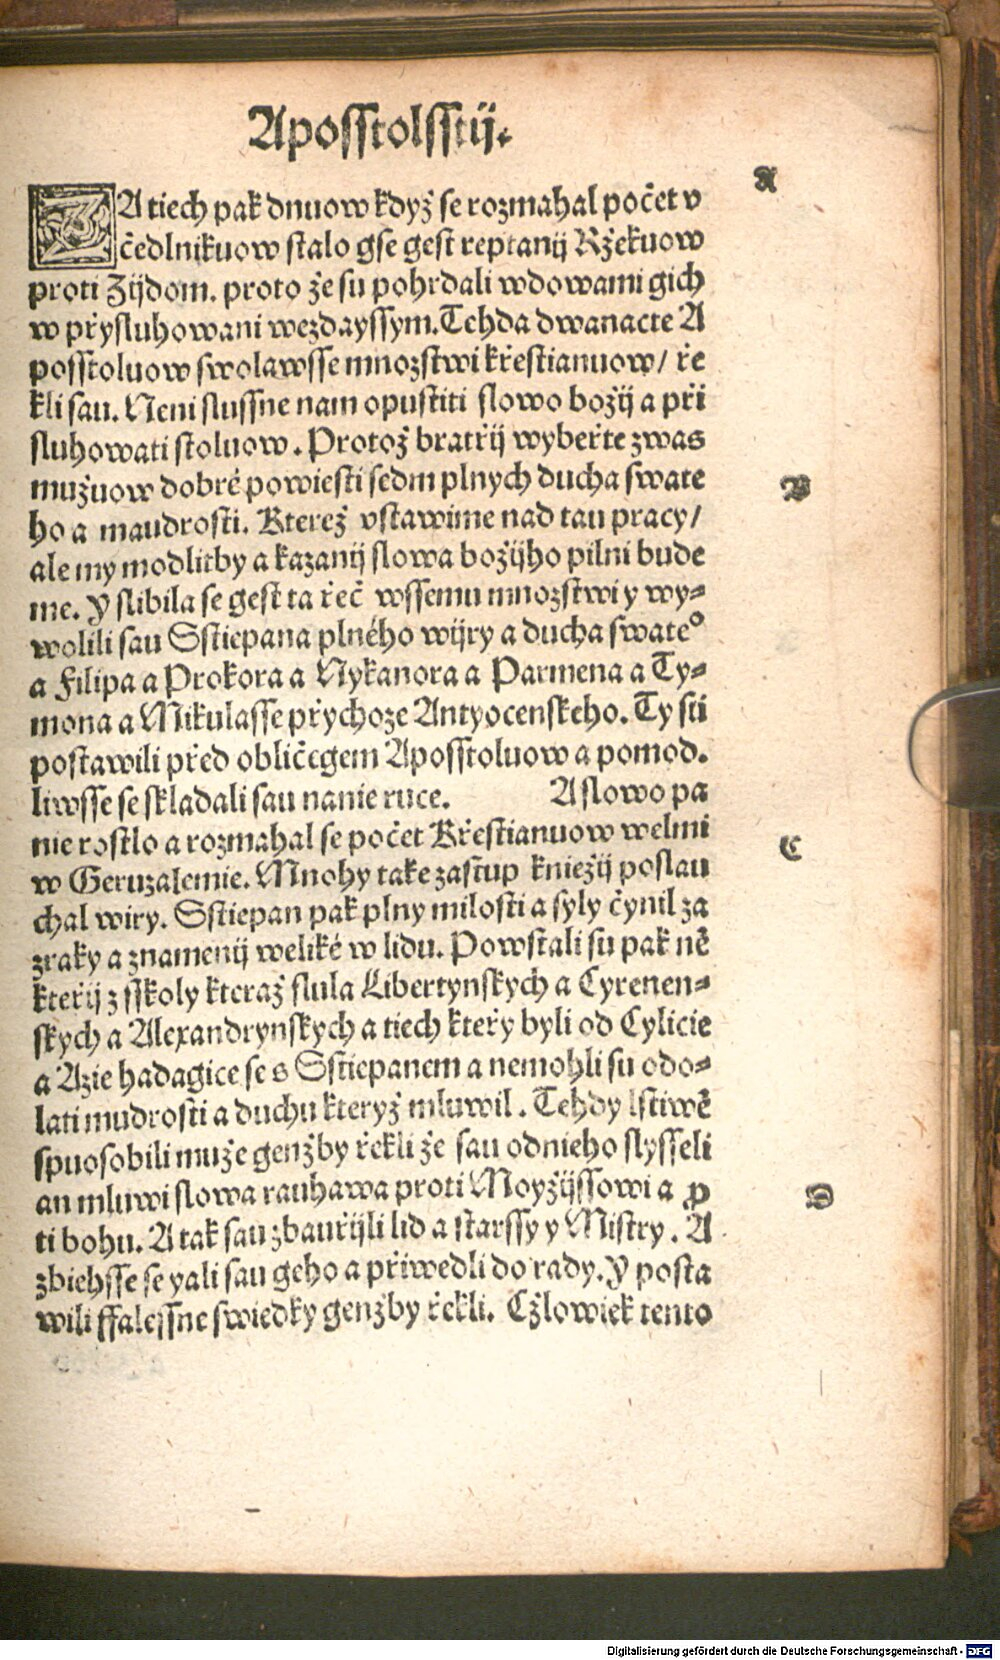 Aposstolsstij.
A
ZA tiech pak dnuow kdyż se rozmahal počet v
čedlnikuow stalo gse gest reptanij Rżekuow
proti Zijdom. proto że su pohrdali wdowami gich
w přysluhowani wezdayssym. Tehda dwanacte A
posstoluow swolawsse mnozstwi křestianuow/ ře
kli sau. Neni slussne nam opustiti slowo bożij a při
sluhowati stoluow. Protoż bratřij wybeřte z was
mużuow dobré powiesti sedm plnych ducha swate
B
ho a maudrosti. Ktereż vstawime nad tau pracy/
ale my modlitby a kazanij slowa bożijho pilni bude
me. Y slibila se gest ta řeč wssemu mnozstwi y wy-
wolili sau Sstiepana plného wijry a ducha swateº
a Filipa a Prokora a Nykanora a Parmena a Ty-
mona a Mikulasse přychoze Antyocenskeho. Ty sti
postawili před obličegem Aposstoluow a pomod.
liwsse se skladali sau nanie ruce. A slowo pa
nie rostlo a rozmahal se počet Křestianuow welmi
C
w Geruzalemie. Mnohy take zastup knieżij poslau
chal wiry. Sstiepan pak plny milosti a syly čynil za
zraky a znamenij weliké w lidu. Powstali su pak ně
kteřij z sskoly kteraż slula Libertynskych a Cyrenen-
skych a Alexandrynskych a tiech kteřy byli od Cylicie
a Azie hadagice se s Sstiepanem a nemohli su odo-
lati mudrosti a duchu kteryż mluwil. Tehdy lstiwě
spuosobili muże genżby řekli że sau odnieho slysseli
an mluwi slowa rauhawa proti Moyżijssowi a ꝓ
D
ti bohu. A tak sau zbauřijli lid a starssy y Mistry. A
zbiehsse se yali sau geho a přiwedli do rady. Y posta
wili ffalessne swiedky genżby řekli. Cżlowiek tento
Digitalisierung gefördert durch die Deutsche Forschungsgemeinschaft - DFG